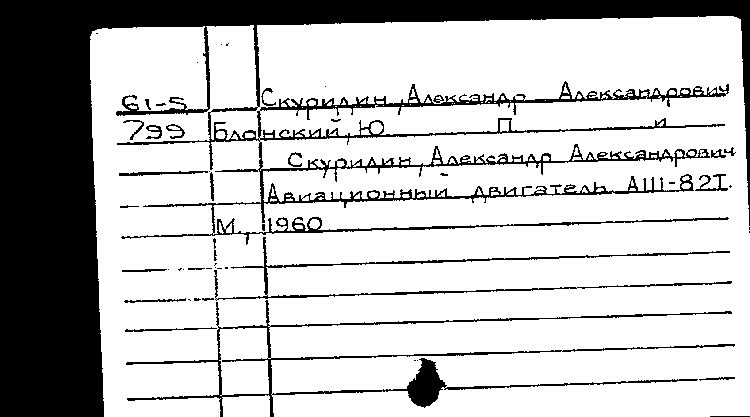 61-5 Скуридин, Александр Александрович
799 Блонский, Ю П и
Скуридин, Александр Александрович
Авиационный двигатель АШ-82Т.
М., 1960